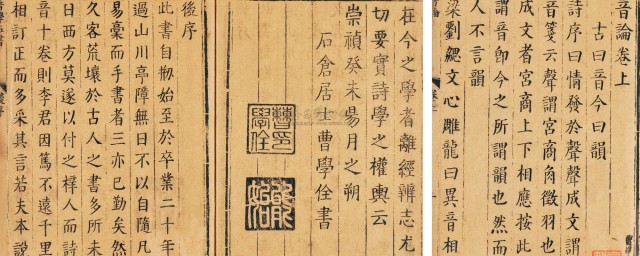 音論卷上
古曰音今曰韻
詩序曰情發於聲聲成文謂
音箋云聲謂宮商角徵羽也
成文者宮商上下相應按此
謂音即今之所謂韻也然而
人不言韻
梁劉勰文心雕龍曰異音相
在今之學者離經辨志尤
切要實詩學之權輿云
崇禎癸未昜月之朔
石倉居士曹學佺書
曹印學佺
能始
後序
此書自刱始至於卒業二十年
過山川亭障無日不以自隨凡
易稾而手書者三亦已勤矣然
久客荒壤於古人之書多所未
日西方莫遂以付之梓人而詩
音十卷則李君因篤不遠千里
相訂正而多采其言若夫本說